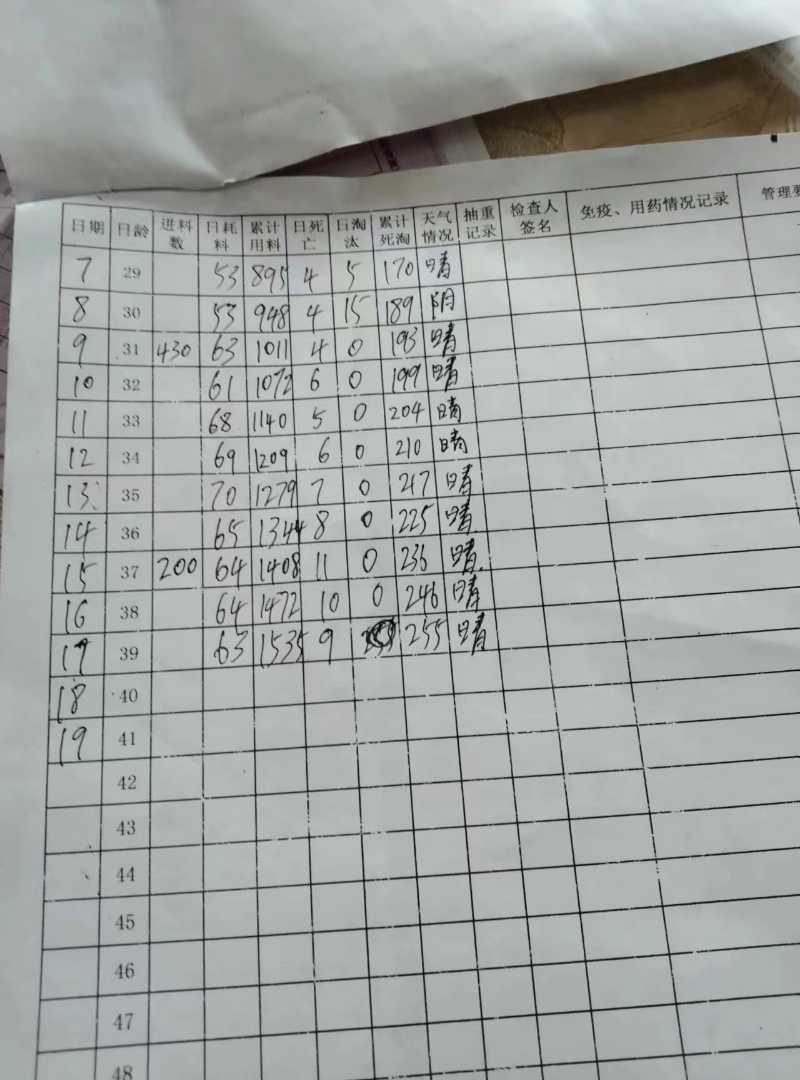 日期 日龄 进料数 日耗料 累计用料 日死亡 日淘汰 累计死淘 天气情况 抽重记录 检查人签名 免疫、用药情况记录 管理要
7 29 53 895 4 5 170 晴
8 30 53 948 4 15 189 阴
9 31 430 63 1011 4 0 193 晴
10 32 61 1072 6 0 199 晴
11 33 68 1140 5 0 204 晴
12 34 69 1209 6 0 210 晴
13 35 70 1279 7 0 217 晴
14 36 65 1344 8 0 225 晴
15 37 200 64 1408 11 0 236 晴
16 38 64 1472 10 0 246 晴
17 39 63 1535 9 255 晴
18 40
19 41
42
43
44
45
46
47
48